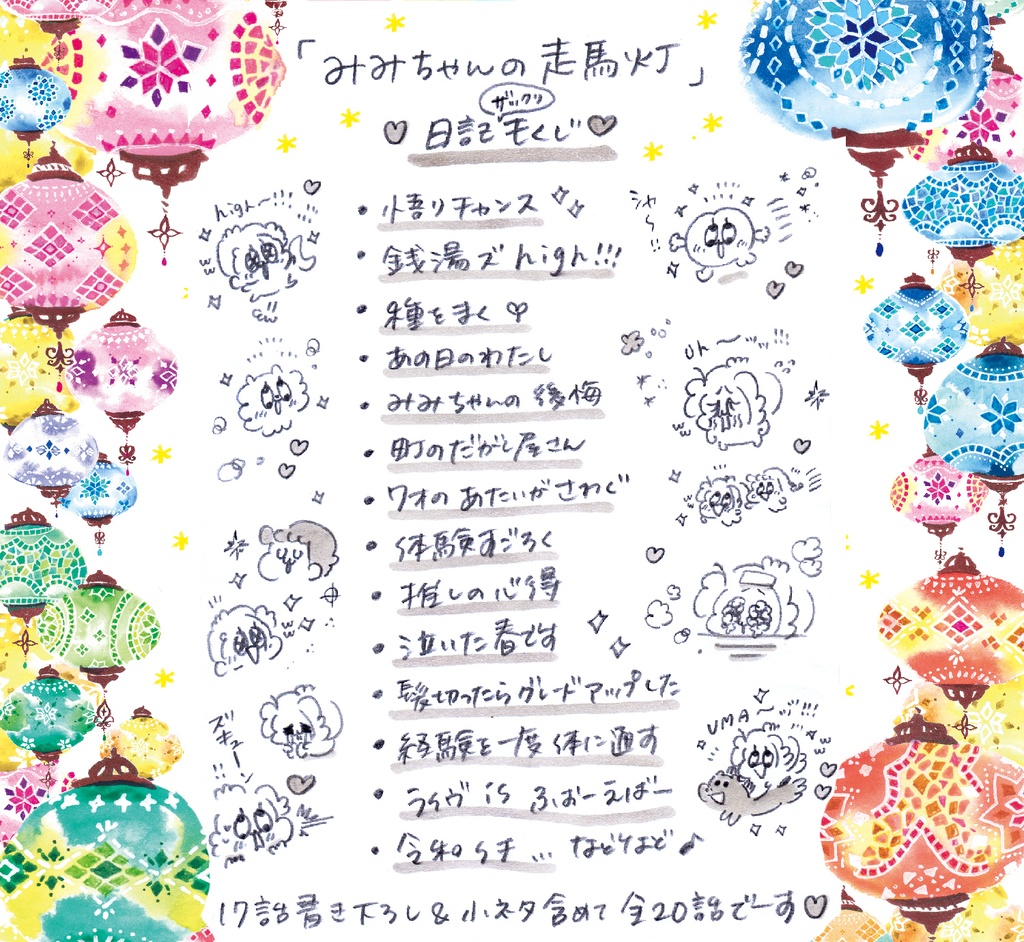 「みみちゃんの走馬灯」
ザックリ
日記もくじ
high〜!!!
・悟りチャンス
・銭湯ズhigh!!!
・種をまく
・あの日のわたし
・みみちゃんの後悔
・町のだがし屋さん
・ワオのあたいがさわぐ
・体験すごろく
・推しの心得
・泣いた春です
・髪切ったらグレードアップした
・経験を一度体に通す
・ライヴ is ふぉーえばー
・令和イチ... などなど♪
ズキューン!!
UMA〜!!!
17話書き下ろし&小ネタ含めて全20話でーす